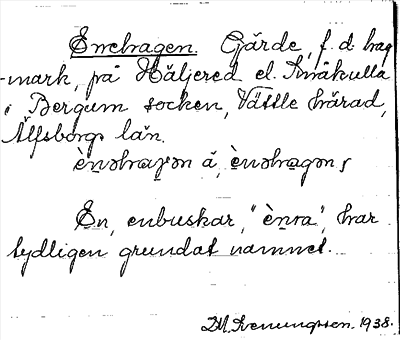 Enehagen. Gärde, f. d. hag
-mark, på Häljered el. Småkulla
i Bergum socken, Vättle härad,
Älfsborgs län.
è̀nəhaɣən å, è̀nəhagən,
En, enbuskar, "è̀nra", har
tydligen grundat namnet.
D.M. Svenungsson. 1938.